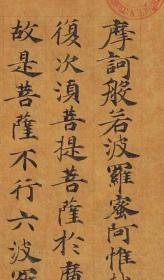 摩訶般若波羅蜜阿惟
復次湏菩提菩薩於
故是菩薩不行六波